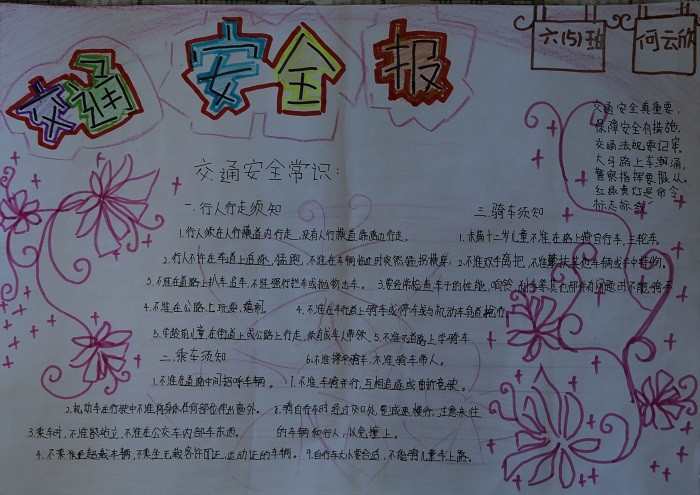 交通安全报
六(5)班
何云欣
交通安全真重要,
保障安全有措施.
交通法规要记牢.
大马路上车潮涌,
警察指挥要服从.
红绿黄灯是命令
交通安全常识:
一.行人行走须知
1.行人须在人行横道内行走,没有人行横道靠路边行走.
2.行人不许在车道上追逐、猛跑,不准在车辆临近时突然
3.不准在道路上扒车、追车,不准强行拦车或抛物击车.
4.不准在公路上玩耍、嬉闹.
5.学龄前儿童在街道上或公路上行走,须有成年人带领.
二.乘车须知
1.不准在道路中间招呼车辆.
2.机动车在行驶中不准将身体任何部份伸出窗外.
3.乘车时,不准站立,不准在公交车内
4.不乘坐超载车辆,不乘坐无载客许可证、运动证的车辆.
三.骑车须知
1.未满十二岁儿童不准在路上骑自行车、三轮车.
2.不准双手离把,不准攀扶其他车辆或手中持物.
3.要经常检查车子的性能.响铃、刹车
4.不准在车行道上骑车或停车或与机动车争道抢行.
5.不准在道路上学骑车.
6.不准骑车带人.
7.不准车骑并行,互相追逐或曲折竞驶.
8.骑自行车时经过交叉处,要减速慢行、注意来往
的车辆和行人,以免撞上.
9.自行车大小要合适,不能骑儿童车上路.